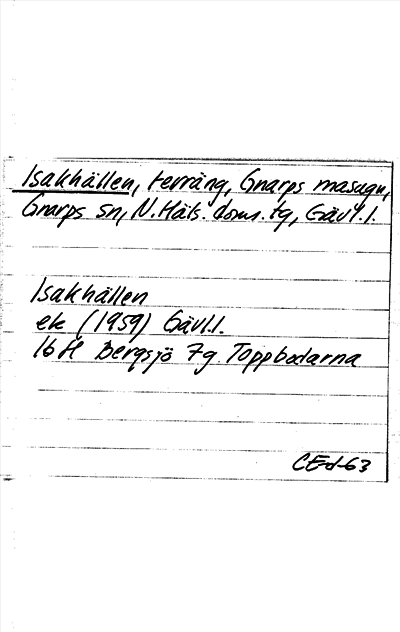 Isakhällen, terräng, Gnarps masugn,
Gnarps sn, N. Häls. doms. tg, Gävl. l.
Isakhällen
ek (1959) Gävl. l.
16H Bergsjö 7g Toppbodarna
CEd-63